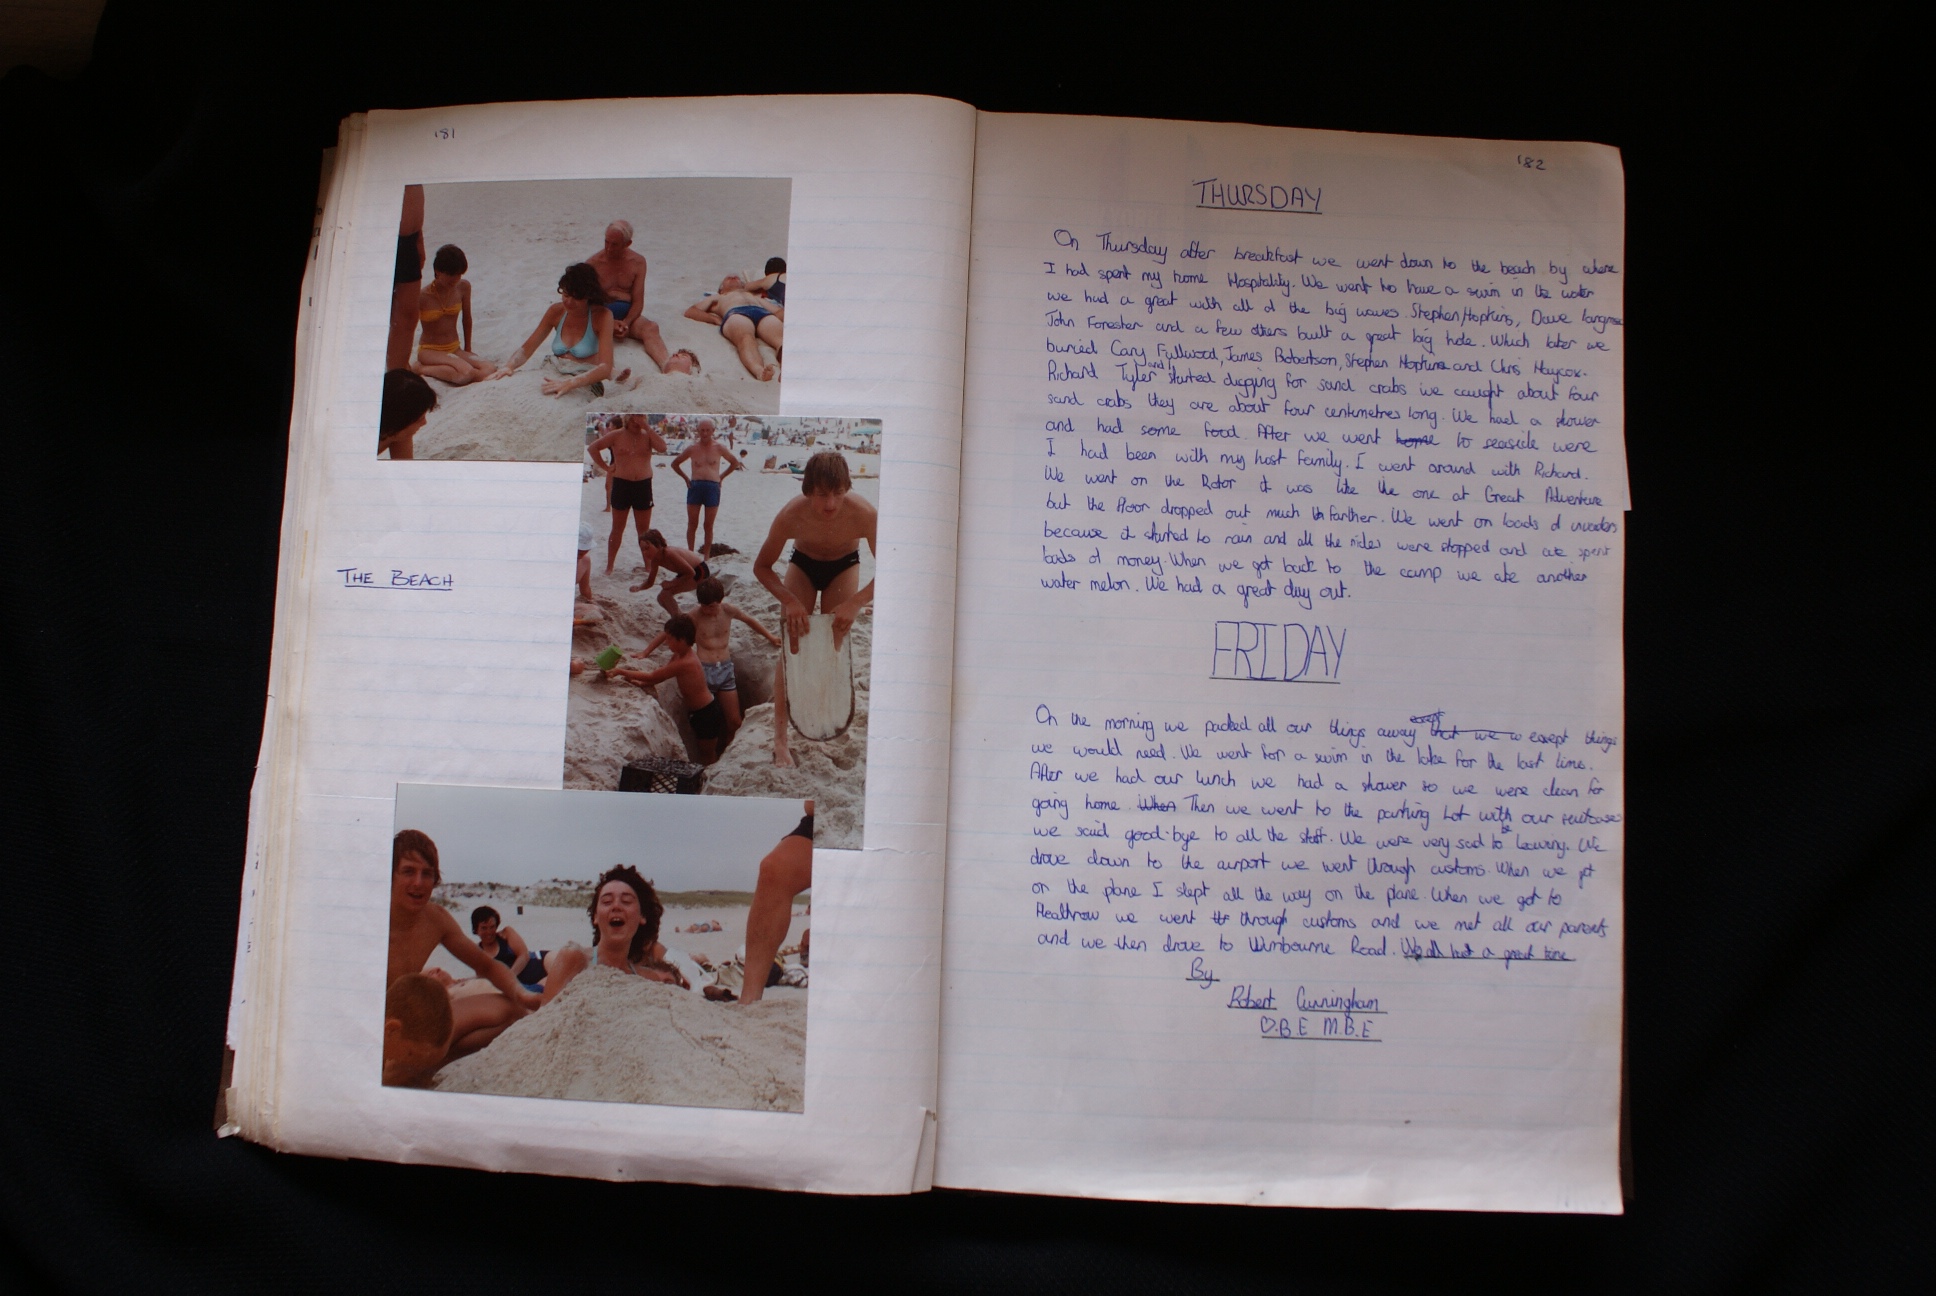 181
THE BEACH
182
THURSDAY
On Thursday after breakfast we went down to the beach by where
I had spent my home Hospitality. We went to have a swim in the water
we had a great with all of the big waves. Stephen Hopkins, Dave
John Forester and a few others built a great big hole. Which later we
buried Cary Fullwood, James Robertson, Stephen Hopkins and Chris Haycox.
Richard Tyler and I started digging for sand crabs we caught about four
sand crabs they are about four centimetres long. We had a shower
and had some food. After we went home to seaside were
I had been with my host family. I went around with Richard.
We went on the Rotor it was like the one at Great Adventure
but the floor dropped out much farther. We went on loads of invaders
because it started to rain and all the rides were stopped and we spent
loads of money. When we got back to the camp we ate another
water melon. We had a great day out.
FRIDAY
On the morning we packed all our things away except that we w except things
we would need. We went for a swim in the lake for the last time.
After we had our lunch we had a shower so we were clean for
going home. When Then we went to the parking Lot with our suitcase
we said good-bye to all the staff. We were very sad to be leaving. We
drove down to the airport we went through customs. When we got
on the plane I slept all the way on the plane. When we got to
Heathrow we went th through customs and we met all our parents
and we then drove to Wimbourne Road. We all had a great time
By
Robert Cunningham
O.B.E M.B.E